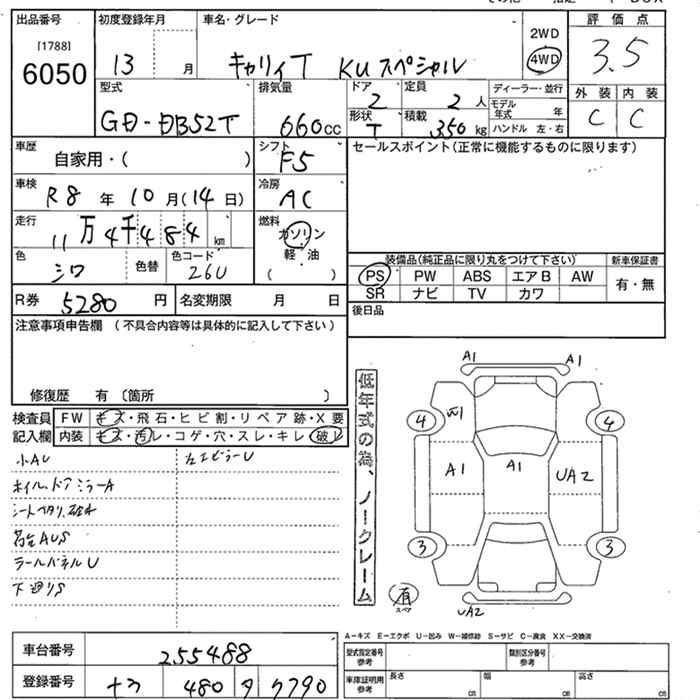 出品番号 初度登録年月 車名・グレード 2WD 評価点
[1788] 13 月 キャリィT KUスペシャル 4WD 3.5
6050
型式 排気量 ドア 2 定員 2 人 ディーラー・並行 外装 内装
モデル年式 年 C C
GD-DB52T 660cc 形状 T 積載 350 kg ハンドル 左・右
車歴 自家用・( ) シフト F5 セールスポイント(正常に機能するものに限ります)
車検 R8 年 10 月(14 日) 冷房 AC
走行 11万4千484 km 燃料 ガソリン
軽・油
( )
色 シロ 色替 色コード 26U 装備品(純正品に限り丸をつけて下さい) 新車保証書
PS PW ABS エアB AW 有・無
SR ナビ TV カワ
R券 5280 円 名変期限 月 日 後日品
注意事項申告欄 (不具合内容等は具体的に記入して下さい)
修復歴 有 〔箇所 〕
検査員 FW キズ・飛石・ヒビ割・リペア跡・X要
記入欄 内装 キズ・汚レ・コゲ・穴・スレ・キレ・破レ
小AU
ホイル,ドアミラーA
荷台AUS
ラールパネルU
下廻りS
低年式の為、ノークレーム
A1 A1
4 W1 4
A1 A1 UA2
3 3
有
スペア
UA2
A-キズ E-エクボ U-凹み W-補修跡 S-サビ C-腐食 XX-交換済
車台番号 255488 型式指定番号 参考 類別区分番号 参考
登録番号 480 タ 7790 車庫証明用 参考 長さ cm 幅 cm 高さ cm